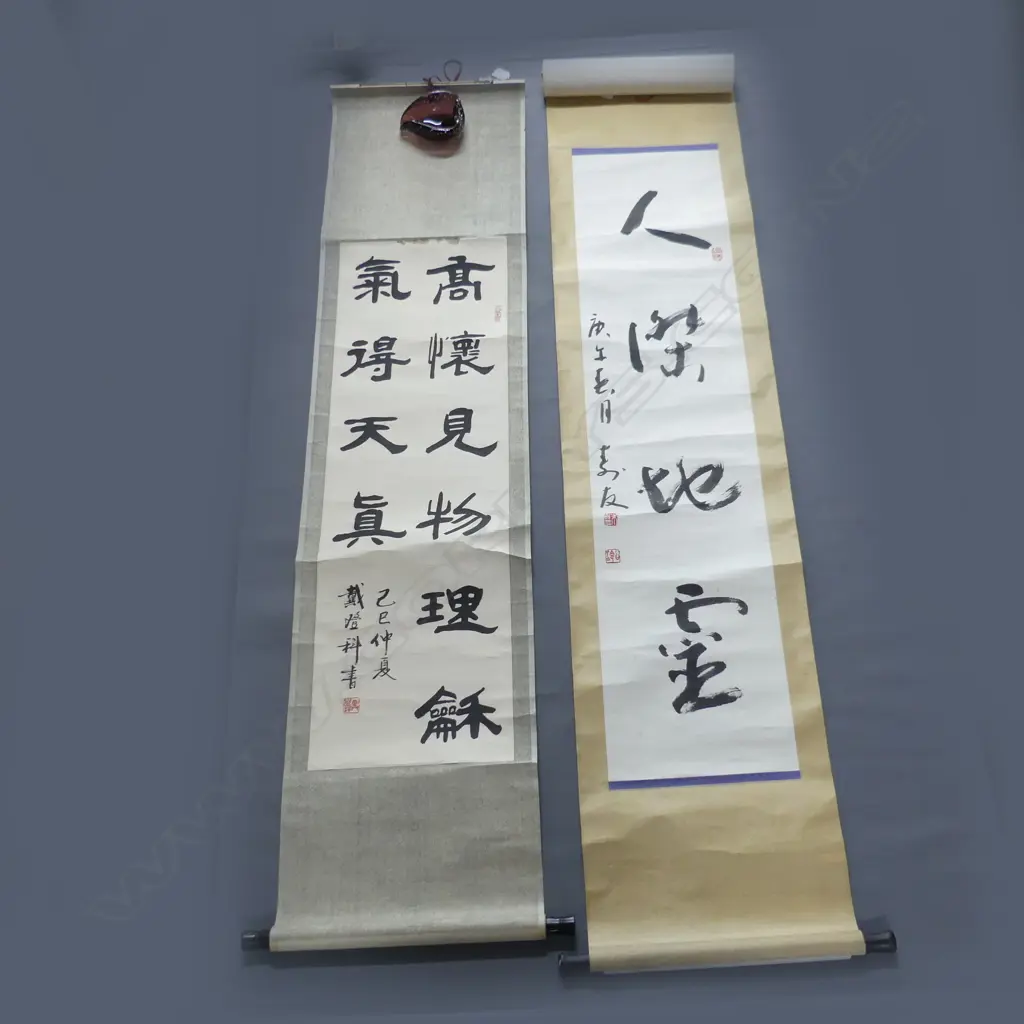 高懷見物理龢
氣得天真
己巳仲夏
戴登科書
人傑地靈
庚午春月 壽友